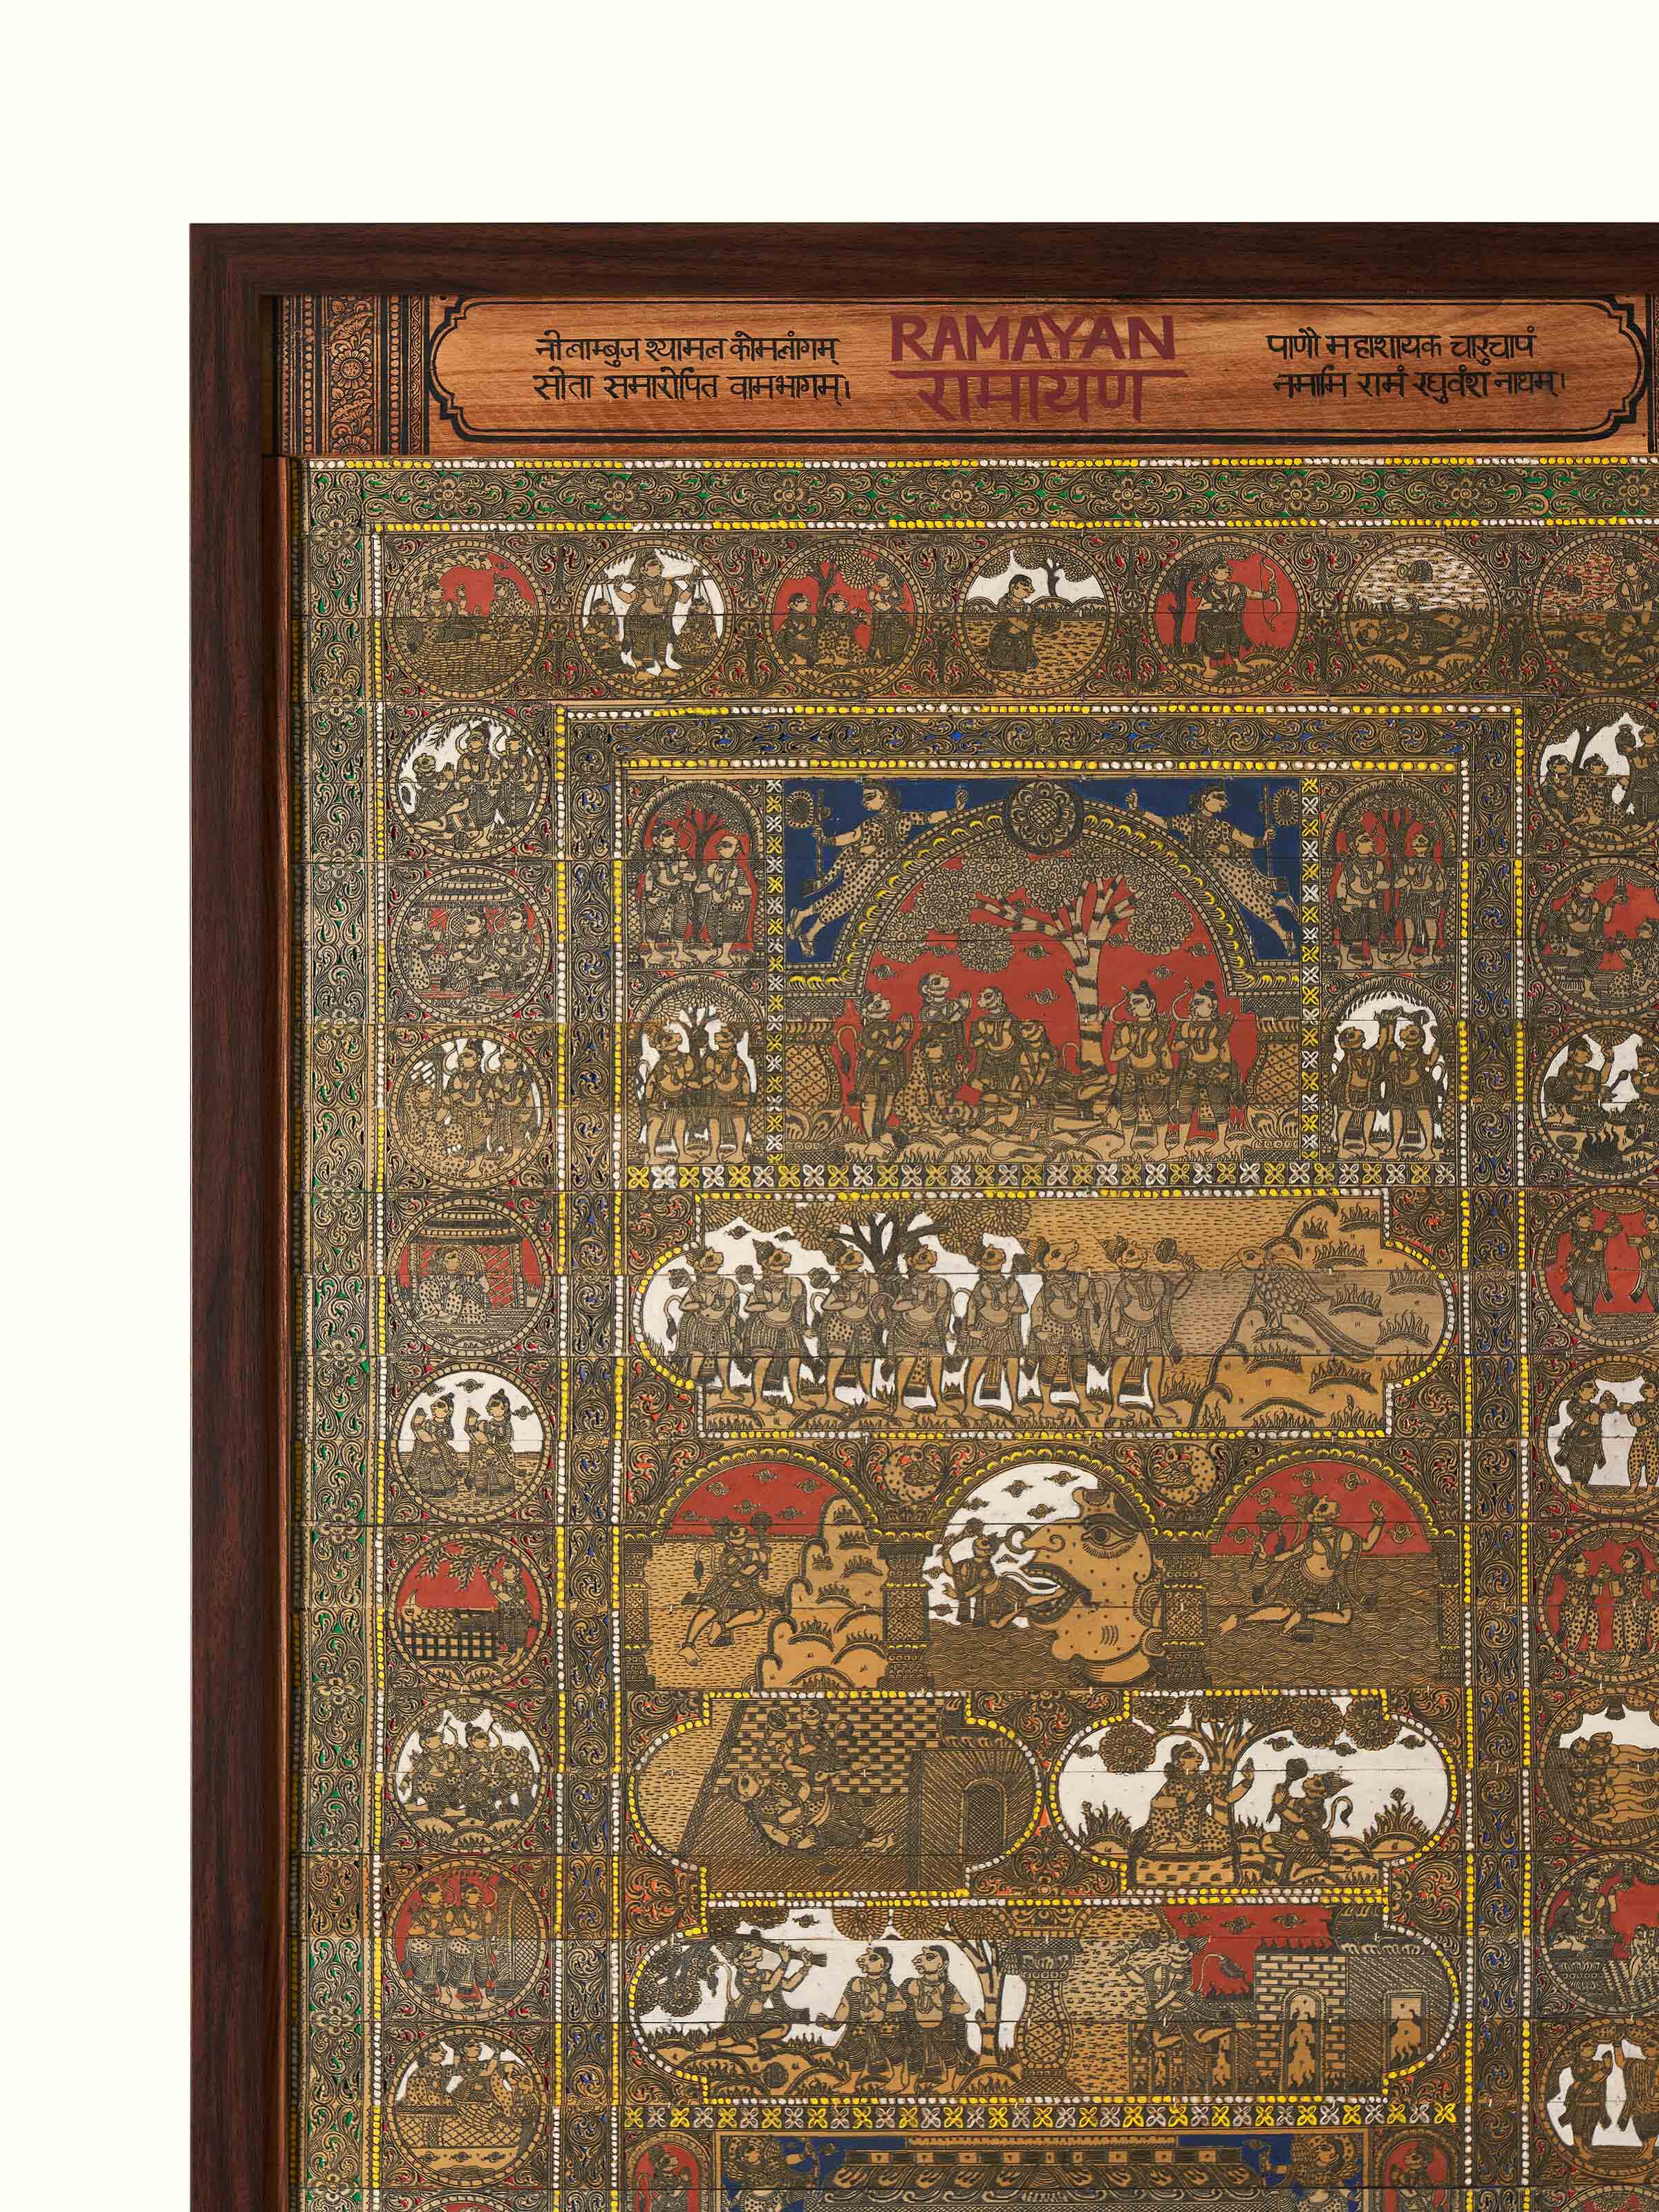 RAMAYAN
रामायण
नीलाम्बुज श्यामल कोमलांगम्
सीता समारोपित वामभागम्।
पाणौ महाशायक चारुचापं
नमामि रामं रघुवंश नाथम्।